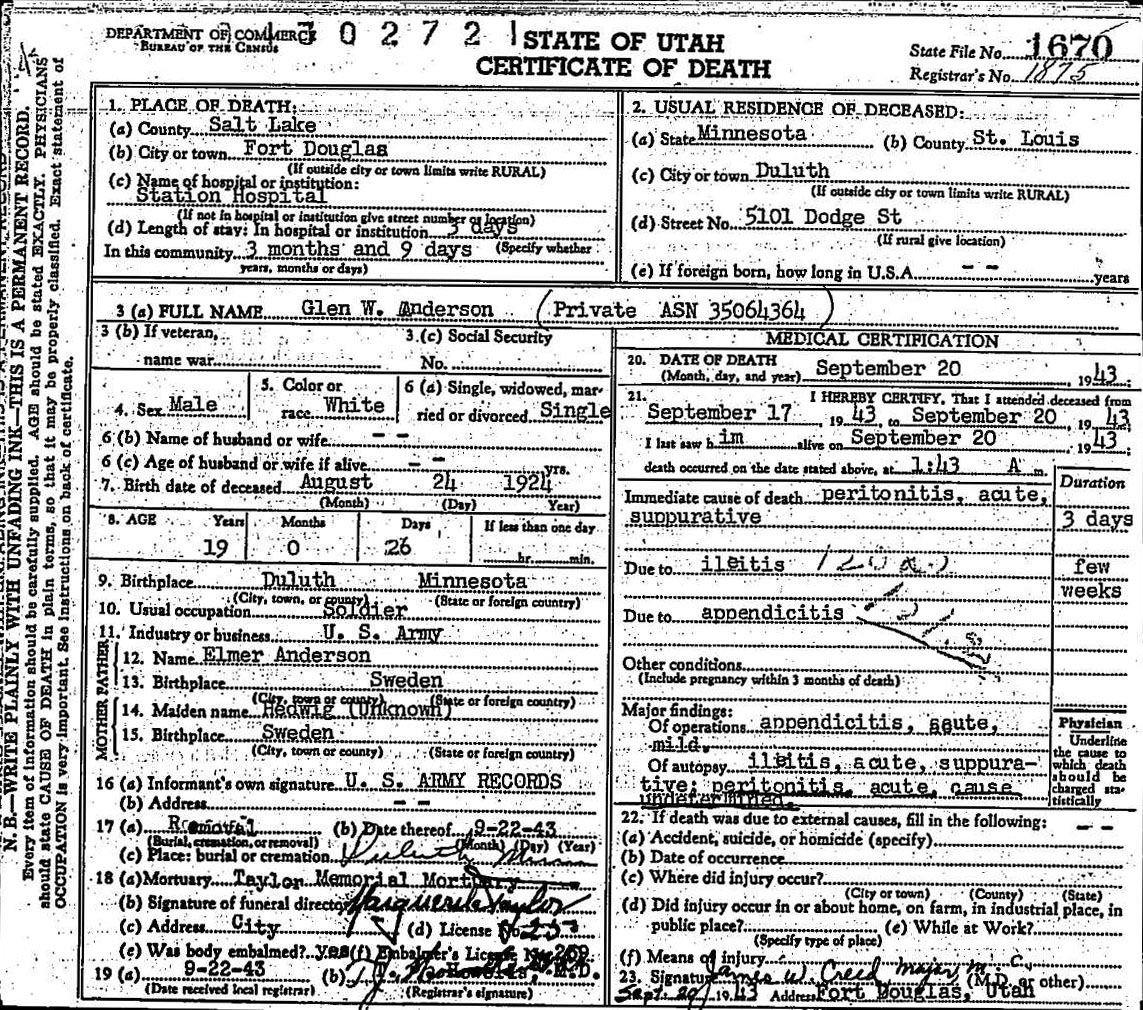 DEPARTMENT OF COMMERCE
BUREAU OF THE CENSUS
30272
STATE OF UTAH
CERTIFICATE OF DEATH
State File No. 1670
Registrar's No. 1875
N. B.—WRITE PLAINLY WITH UNFADING INK—THIS IS A PERMANENT RECORD.
Every item of information should be carefully supplied. AGE should be stated EXACTLY. PHYSICIANS
should state CAUSE OF DEATH in plain terms, so that it may be properly classified. Exact statement of
OCCUPATION is very important. See instructions on back of certificate.
1. PLACE OF DEATH:
(a) County Salt Lake
(b) City or town Fort Douglas
(If outside city or town limits write RURAL)
(c) Name of hospital or institution:
Station Hospital
(If not in hospital or institution give street number or location)
(d) Length of stay: In hospital or institution 3 days
(Specify whether
In this community 3 months and 9 days
years, months or days)
2. USUAL RESIDENCE OF DECEASED:
(a) State Minnesota (b) County St. Louis
(c) City or town Duluth
(If outside city or town limits write RURAL)
(d) Street No. 5101 Dodge St
(If rural give location)
(e) If foreign born, how long in U.S.A. -- years
3 (a) FULL NAME Glen W. Anderson (Private ASN 35064364)
3 (b) If veteran, 3.(c) Social Security
name war No.
4. Sex Male
5. Color or
race White
6 (a) Single, widowed, mar-
ried or divorced Single
6 (b) Name of husband or wife --
6 (c) Age of husband or wife if alive -- yrs.
7. Birth date of deceased August 24 1924
(Month) (Day) Year)
8. AGE Years Months Days If less than one day
19 0 26 hr. min.
9. Birthplace Duluth Minnesota
(City, town, or county) (State or foreign country)
10. Usual occupation Soldier
11. Industry or business U. S. Army
FATHER
12. Name Elmer Anderson
13. Birthplace Sweden
(City, town or county) (State or foreign country)
MOTHER
14. Maiden name Hedwig (Unknown)
15. Birthplace Sweden
(City, town or county) (State or foreign country)
16 (a) Informant's own signature U. S. ARMY RECORDS
(b) Address --
17 (a) Removal (b) Date thereof 9-22-43
(Burial, cremation, or removal) (Month) (Day) (Year)
(c) Place: burial or cremation Duluth Minn
18 (a) Mortuary Taylor Memorial Mortuary
(b) Signature of funeral director Marguerite Taylor
(c) Address City (d) License No 253
(e) Was body embalmed? yes (f) Embalmer's License No 269
19 (a) 9-22-43 (b) M.D.
(Date received local registrar) (Registrar's signature)
MEDICAL CERTIFICATION
20. DATE OF DEATH
(Month, day, and year) September 20, 1943
21. I HEREBY CERTIFY, That I attended deceased from
September 17, 1943, to September 20, 1943
I last saw him alive on September 20, 1943
death occurred on the date stated above, at 1:43 A m.
Duration
Immediate cause of death peritonitis, acute,
suppurative 3 days
Due to ileitis few
weeks
Due to appendicitis
Other conditions
(Include pregnancy within 3 months of death)
Major findings:
Of operations appendicitis, acute,
mild.
Of autopsy ileitis, acute, suppura-
tive; peritonitis, acute, cause
undetermined.
Physician
Underline
the cause to
which death
should be
charged sta-
tistically
22. If death was due to external causes, fill in the following: --
(a) Accident, suicide, or homicide (specify)
(b) Date of occurrence
(c) Where did injury occur?
(City or town) (County) (State)
(d) Did injury occur in or about home, on farm, in industrial place, in
public place? (e) While at Work?
(Specify type of place)
(f) Means of injury
23. Signature James W. Creed Major M. C. (M.D. or other)
Sept. 20, 1943 Address Fort Douglas, Utah